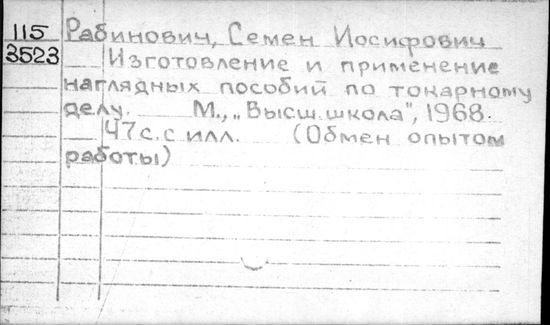 115 Рабинович, Семен Иосифович
3523 Изготовление и применение
наглядных пособий по токарному
делу. М., „Высш. школа", 1968.
47 с. с илл. (Обмен опытом
работы)